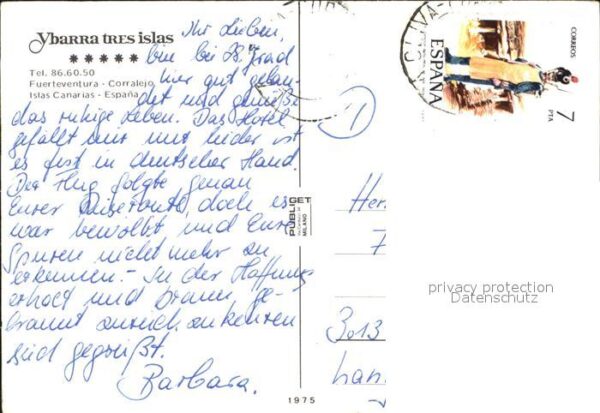 Ybarra tres islas
★★★★★
Tel. 86.60.50
Fuerteventura - Corralejo
Islas Canarias - España
Ihr Lieben,
bin bei 28 Grad
hier gut gelan-
det und genieße
das ruhige Leben. Das Hotel
gefällt mir nur leider ist
es fest in deutscher Hand.
Der Flug folgte genau
Eurer Reiseroute, doch es
war bewölkt und Eure
Spuren nicht mehr zu
erkennen. - In der Hoffnung
erholt und braun ge-
brannt zurückzukehren
seid gegrüßt.
Barbara.
PUBLICET
MILANO
1975
CORREOS
ESPAÑA
7
PTA
1
Her
7
privacy protection
Datenschutz
3013